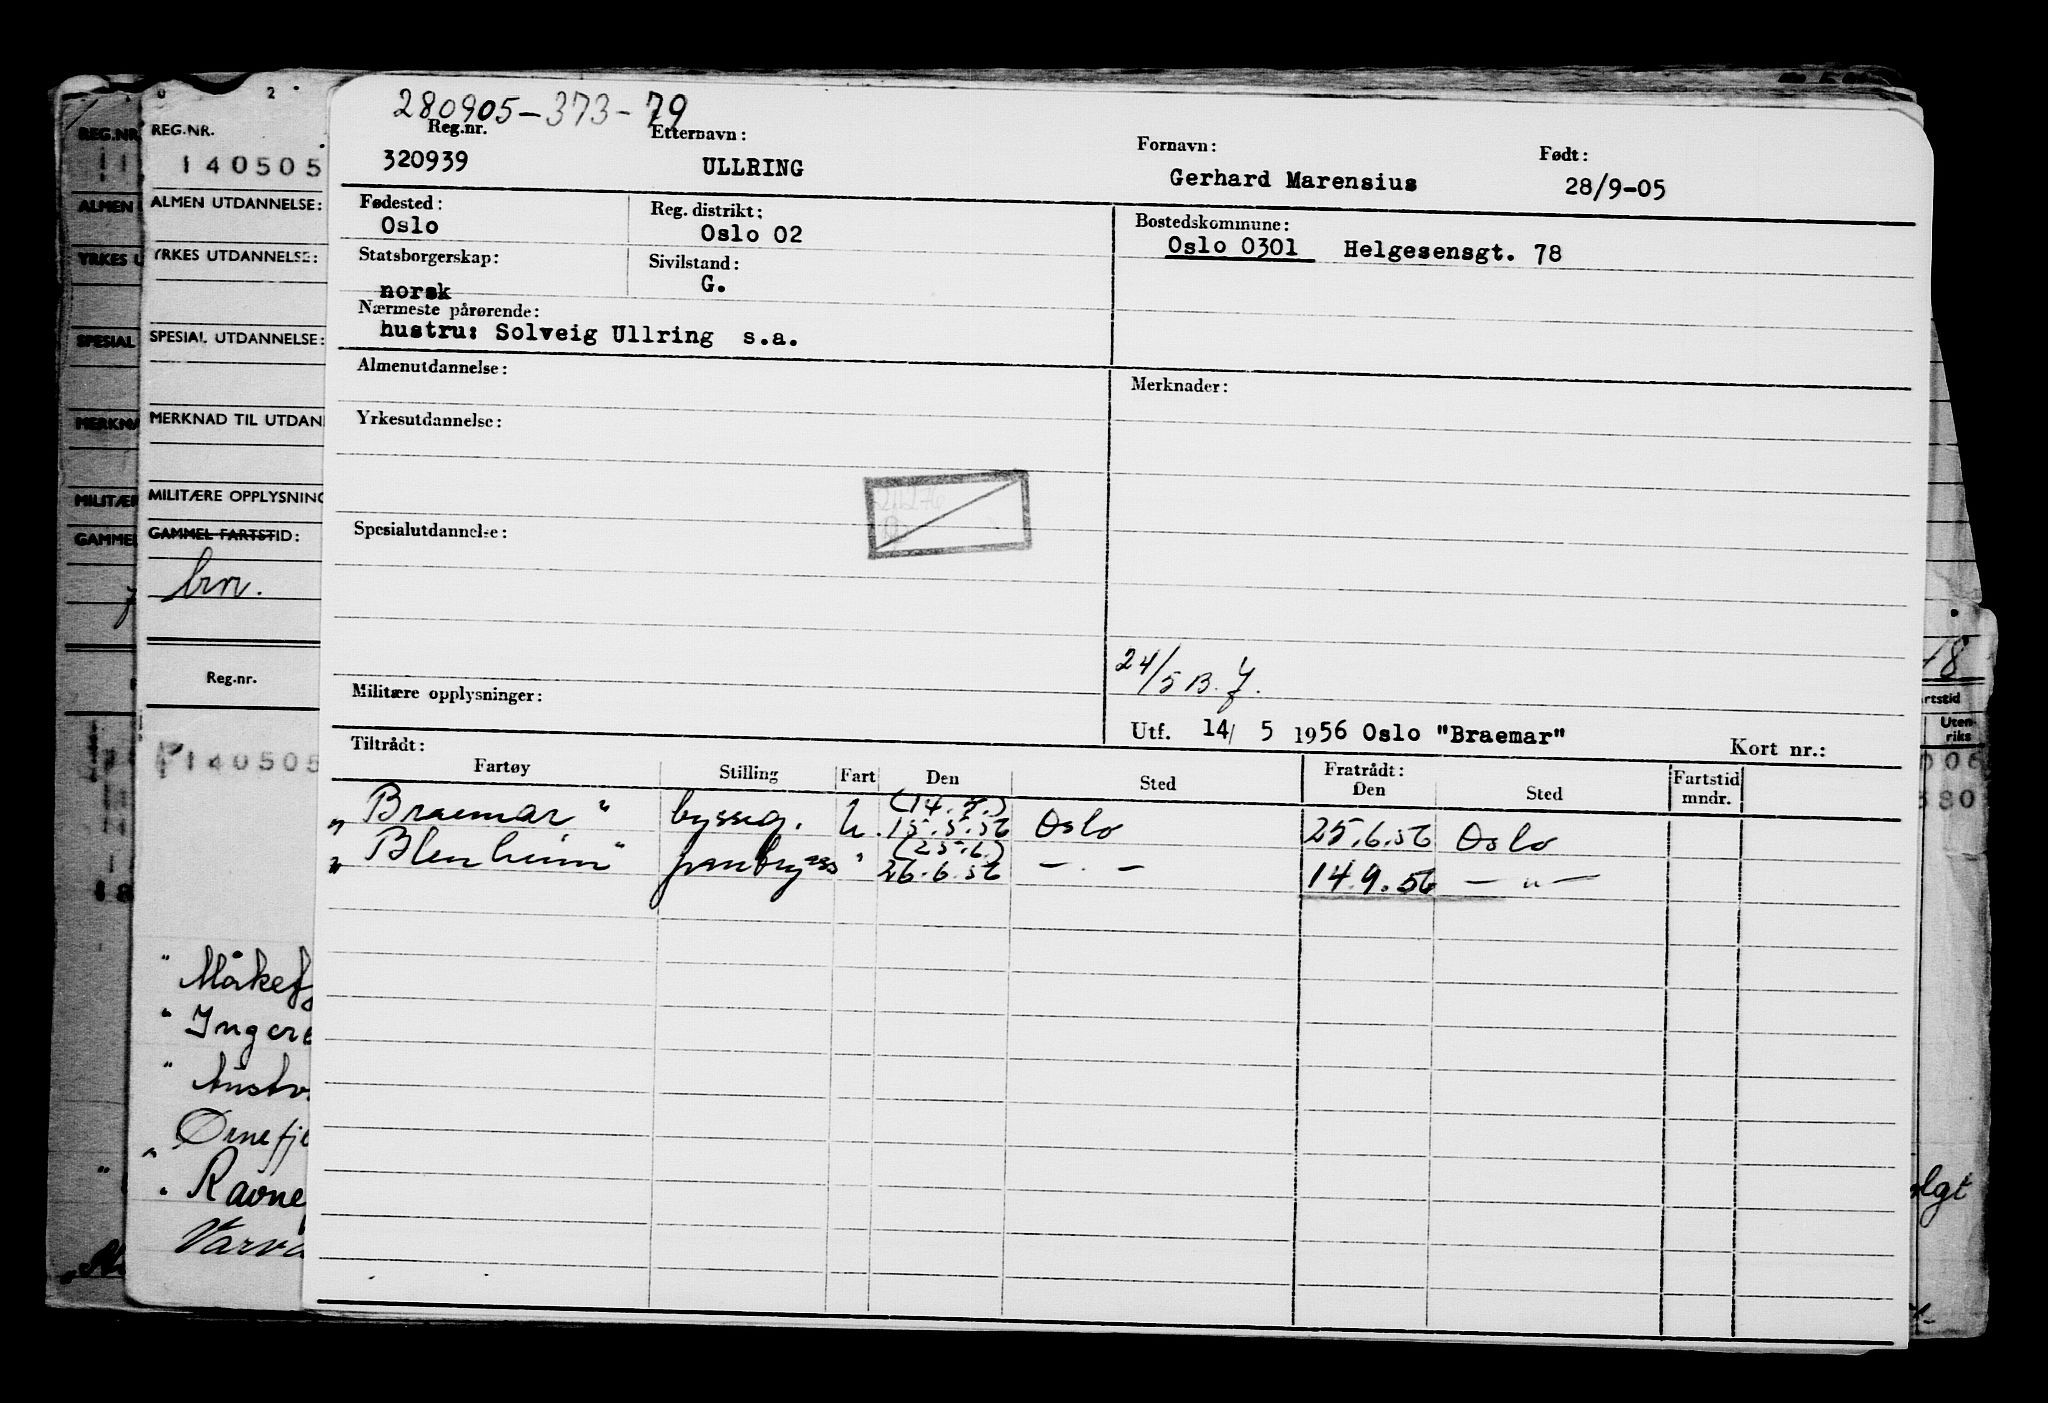 280905-373-79
Reg.nr. Etternavn: Fornavn: Født:
320939 ULLRING Gerhard Marensius 28/9-05
Fødested: Reg. distrikt: Bostedskommune:
Oslo Oslo 02 Oslo 0301 Helgesensgt. 78
Statsborgerskap: Sivilstand:
norsk G.
Nærmeste pårørende:
hustru: Solveig Ullring s.a.
Almenutdannelse: Merknader:
Yrkesutdannelse:
Spesialutdannelse:
24/5 B. J.
Militære opplysninger:
Utf. 14/ 5 1956 Oslo "Braemar" Kort nr.:
Tiltrådt: Fratrådt:
Fartøy Stilling Fart Den Sted Den Sted Fartstid mndr.
(14.7.)
"Braemar" bysseg. U. 15.5.56 Oslo 25.6.56 Oslo
(25.6.)
"Blenheim" " 26.6.56 — . — 14.9.56 — " —
REG.NR.
140505
ALMEN UTDANNELSE:
YRKES UTDANNELSE:
SPESIAL UTDANNELSE:
MERKNAD TIL UTDAN
MILITÆRE OPPLYSNING
GAMMEL FARTSTID:
Reg.nr.
140505
" Ingere
Ørnefj
Varva
REG.NR
ALMEN
YRKES U
SPESIAL
MERKNA
MILITÆR
GAMMEL
18
rtstid
Uten-
riks
006
380
olgt